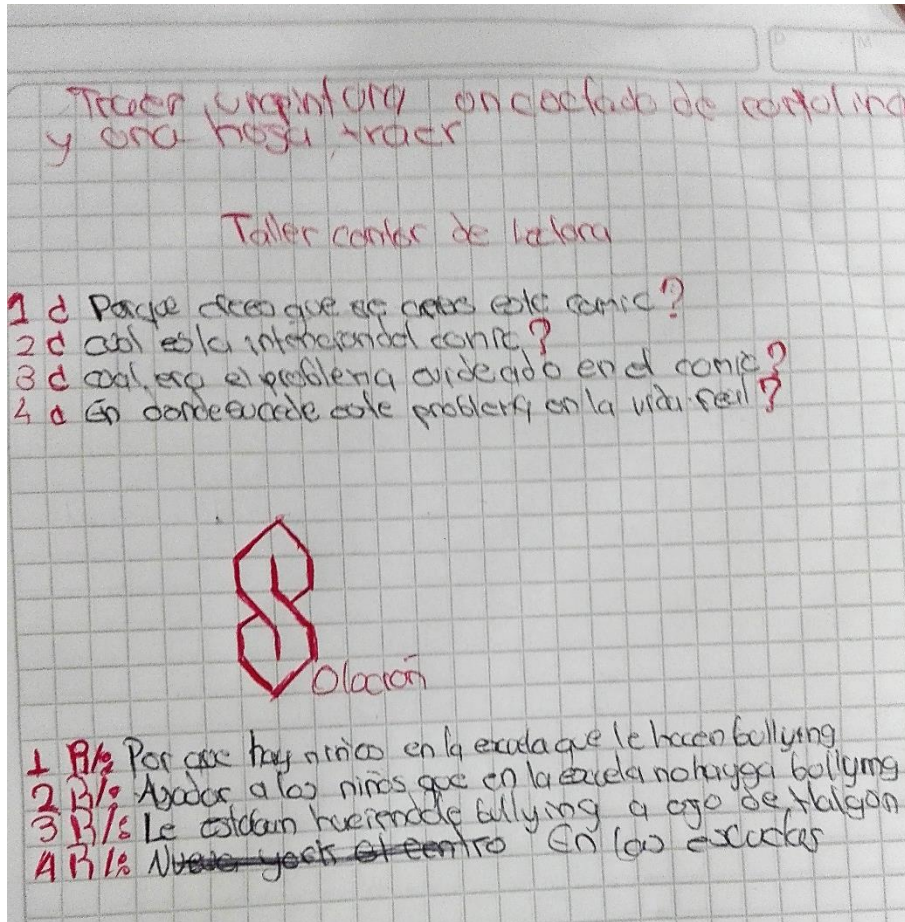 y una hoga traer
Taller comics de
1 ¿ Porque creo que se creo este comic?
2 ¿ cual es la intencion del comic?
3 ¿ cual era el problema evidenciado en el comic?
4 ¿ En donde sucede este problema en la vida real?
Solocion
1 R/: Por que hay ninños en la escuela que le hacen bullying
2 R/: Ayudar a los niños que en la escuela no haygga bollying
3 R/: Le estaban haciendole bullying a ogo de Halcon
4 R/: En las escuelas